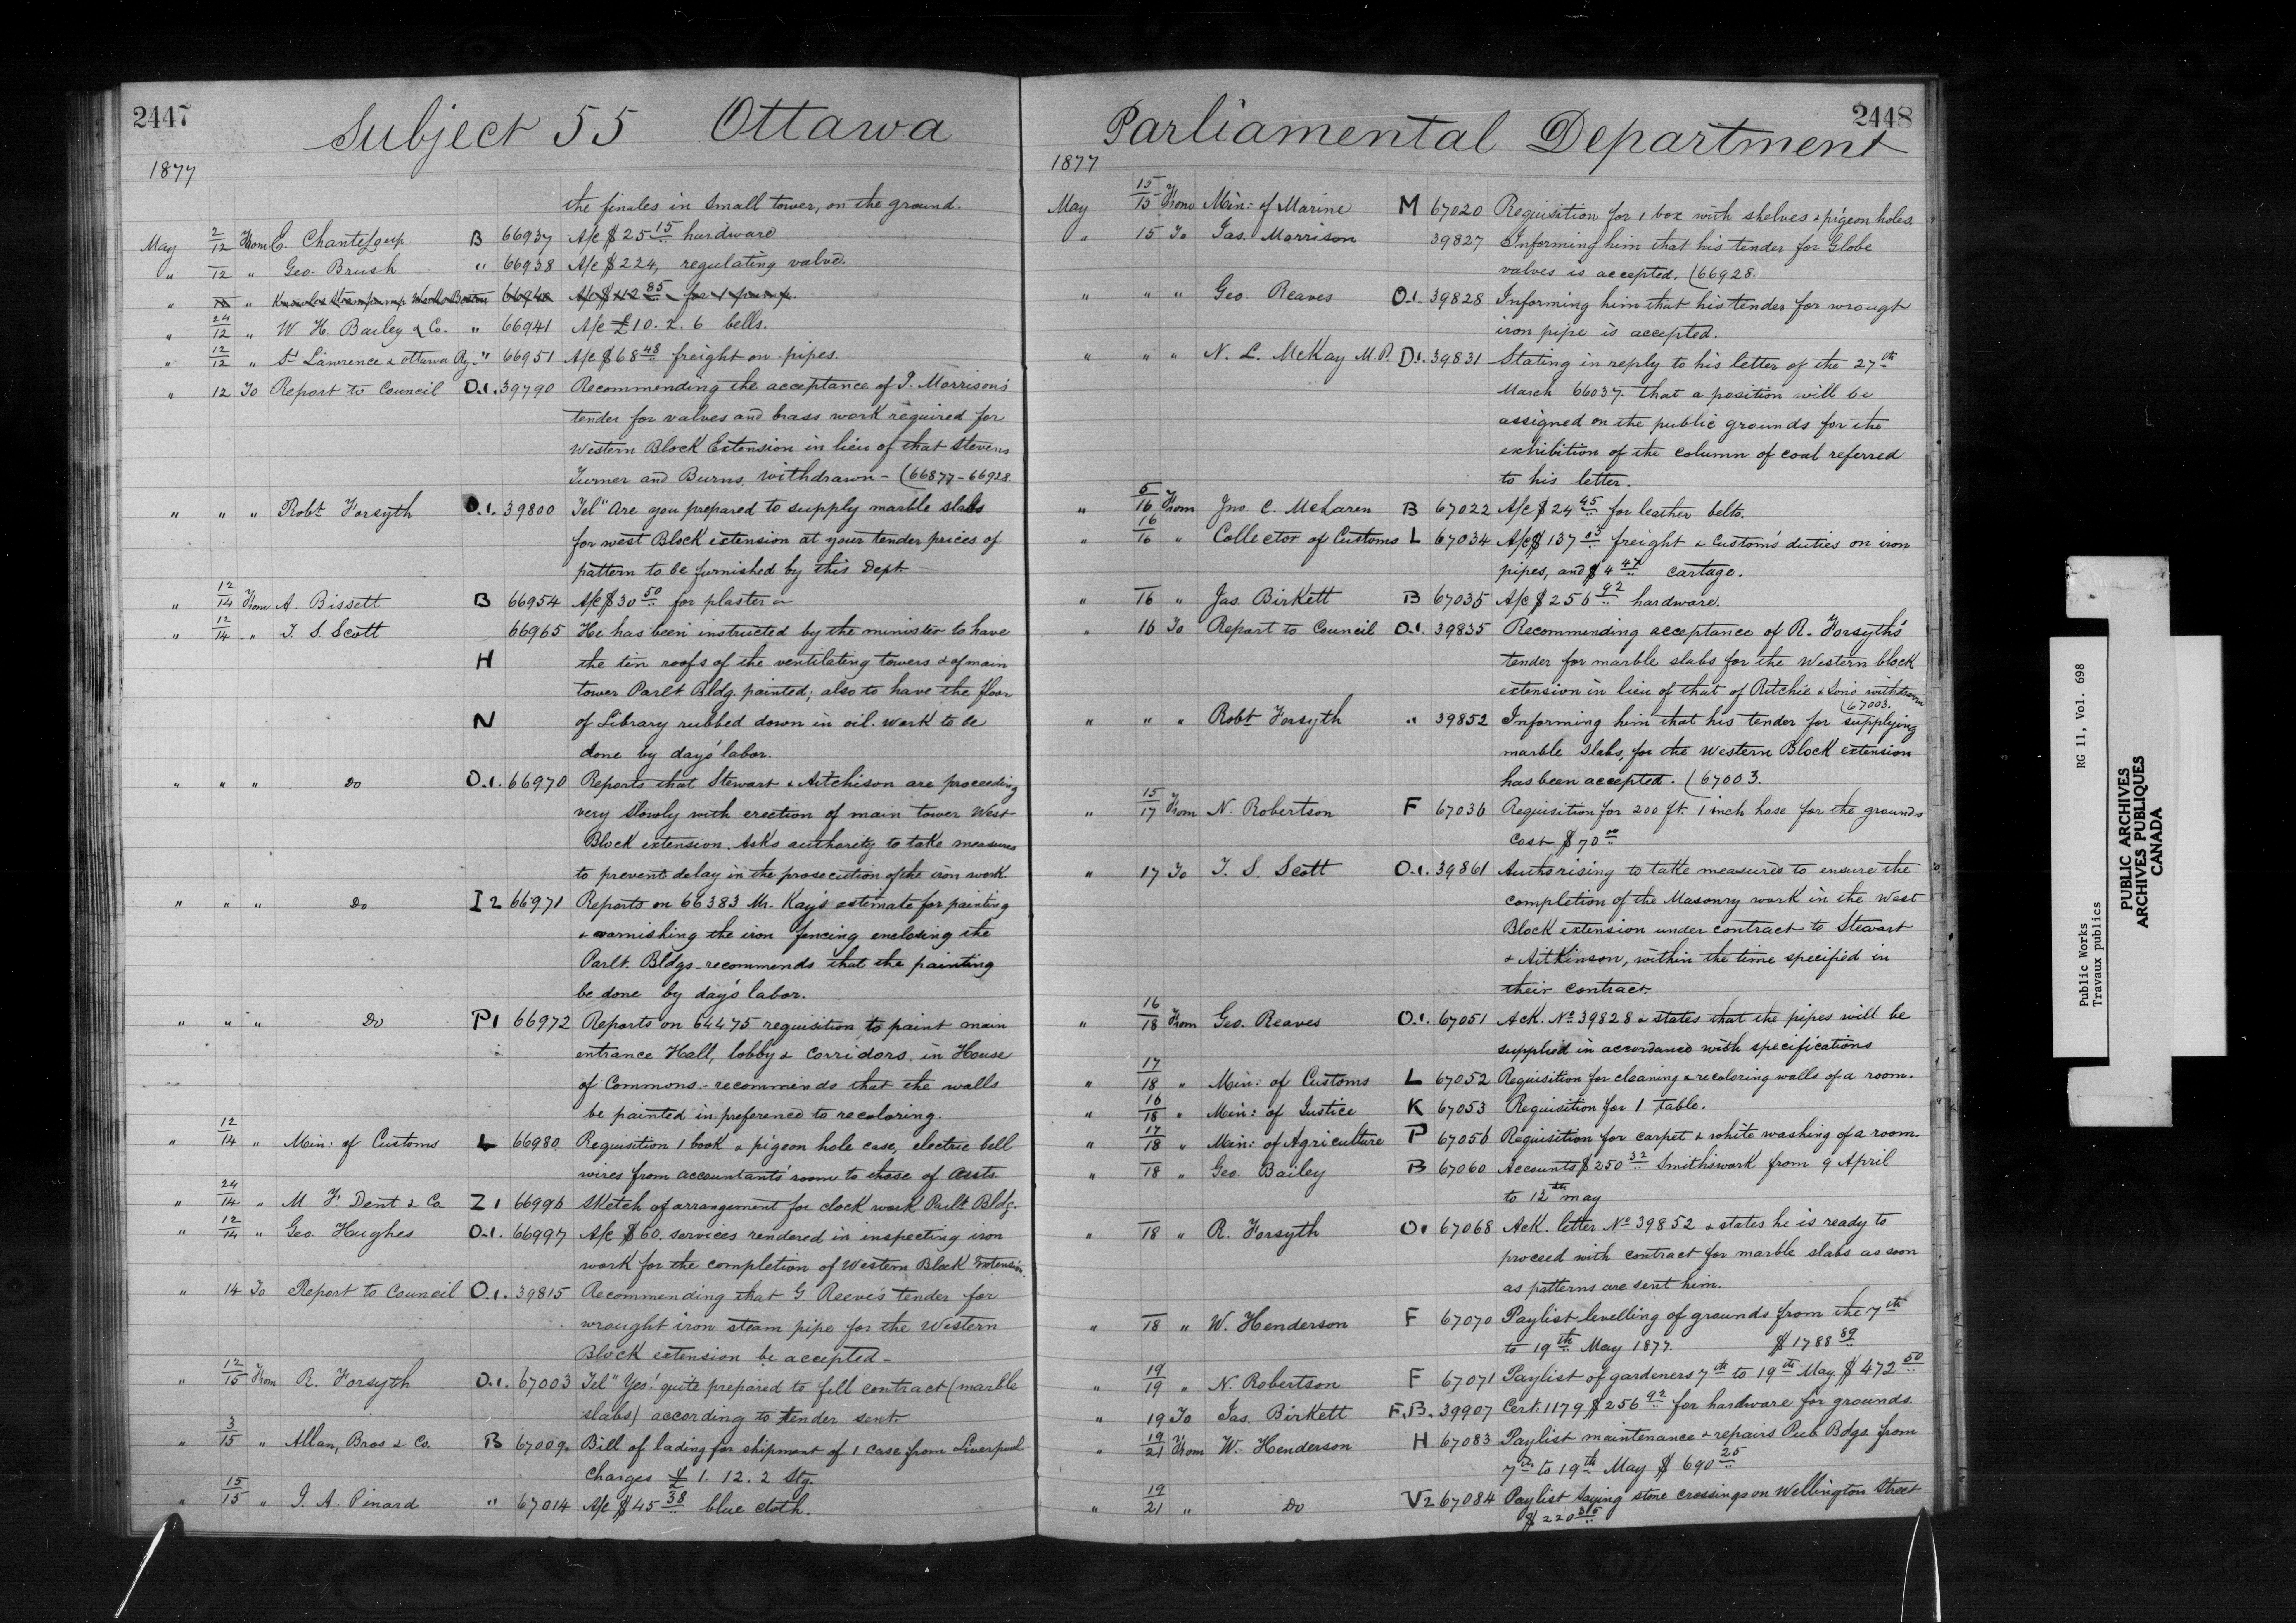 2447
Subject 55 Ottawa
1877
the finales in small tower, on the ground.
May 2/12 From E. Chanteloup B 66937 A/c $25 15 hardware
" 12 " Geo. Brush " 66938 A/c $224, regulating valve.
" 12 " Knowles Steam pump Works Boston 66940 A/c $412 85 for 1 pump.
" 24/12 " W. H. Bailey & Co. " 66941 A/c £10. 2. 6 bells.
" 12/12 " St Lawrence & Ottawa Ry. " 66951 A/c $68 48 freight on pipes.
" 12 To Report to Council O.1. 39790 Recommending the acceptance of J. Morrison's
tender for valves and brass work required for
Western Block Extension in lieu of that Stevens
Turner and Burns withdrawn - (66877 - 66928
" " " Robt Forsyth O.1. 39800 Tel " Are you prepared to supply marble slabs
for west Block extension at your tender prices of
pattern to be furnished by this Dept
" 12/14 From A. Bissett B 66954 A/c $30 50 for plaster
" 12/14 " T. S. Scott 66965 He has been instructed by the minister to have
H the tin roofs of the ventilating towers & of main
tower Parlt Bldg. painted; also to have the floor
N of Library rubbed down in oil. Work to be
done by day's labor.
" " " Do O.1. 66970 Reports that Stewart & Aitchison are proceeding
very slowly with erection of main tower West
Block extension. Asks authority to take measures
to prevent delay in the prosecution of the iron work
" " " Do I2 66971 Reports on 66383 Mr. Kay's estimate for painting
& varnishing the iron fencing enclosing the
Parlt. Bldgs. - recommends that the painting
be done by day's labor.
" " " Do P1 66972 Reports on 64475 requisition to paint main
entrance Hall, lobby & corridors in House
of Commons. - recommends that the walls
be painted in preference to recoloring.
" 12/14 " Min: of Customs L 66980 Requisition 1 book & pigeon hole case, electric bell
wires from accountants' room to those of assts.
" 24/14 " M. F. Dent & Co. Z1 66996 Sketch of arrangement for clock work Parlt Bldg.
" 12/14 " Geo. Hughes O.1. 66997 A/c $60. services rendered in inspecting iron
work for the completion of Western Block Extension.
" 14 To Report to Council O.1. 39815 Recommending that G. Reeve's tender for
wrought iron steam pipe for the Western
Block extension be accepted -
" 12/15 From R. Forsyth O.1. 67003 Tel " Yes! quite prepared to fill contract (marble
slabs) according to tender sent.
" 3/15 " Allan, Bros & Co. B 67009 Bill of lading for shipment of 1 case from Liverpool
Charges £ 1. 12. 2 Stg
" 15/15 " J. A. Pinard " 67014 A/c $45 38 blue cloth.
2448
Parliamental Department
1877
May 15/15 From Min: of Marine M 67020 Requisition for 1 box with shelves & pigeon holes.
" 15 To Jas. Morrison 39827 Informing him that his tender for Globe
valves is accepted. (66928.
" " " Geo. Reaves O.1. 39828 Informing him that his tender for wrougt
iron pipe is accepted.
" " " N. L. McKay M.P. D1. 39831 Stating in reply to his letter of the 27th
March 66037 that a position will be
assigned on the public grounds for the
exhibition of the column of coal referred
to his letter.
" 5/16 From Jno. C. McLaren B 67022 A/c $24 45 for leather belts.
" 16/16 " Collector of Customs L 67034 A/c $137 03 freight & Custom's duties on iron
pipes, and $4 47 cartage.
" 16 " Jas. Birkett B 67035 A/c $256 92 hardware.
" 16 To Report to Council O.1. 39835 Recommending acceptance of R. Forsyth's
tender for marble slabs for the Western block
extension in lieu of that of Ritchie & Sons withdrawn
(67003.
" " " Robt Forsyth " 39852 Informing him that his tender for supplying
marble slabs, for the Western Block extension
has been accepted. (67003.
" 15/17 From N. Robertson F 67036 Requisition for 200 ft. 1 inch hose for the grounds
Cost $70 00
" 17 To T. S. Scott O.1. 39861 Authorising to take measures to ensure the
completion of the Masonry work in the West
Block extension under contract to Stewart
& Aitkinson, within the time specified in
their contract.
" 16/18 From Geo. Reaves O.1. 67051 Ack. No 39828 & states that the pipes will be
supplied in accordance with specifications
" 17/18 " Min: of Customs L 67052 Requisition for cleaning & recoloring walls of a room.
" 16/18 " Min: of Justice K 67053 Requisition for 1 table.
" 17/18 " Min: of Agriculture P 67056 Requisition for carpet & white washing of a room.
" 18 " Geo. Bailey B 67060 Accounts $250 32 Smithswork from 9 April
to 12th may
" 18 " R. Forsyth O1 67068 Ack. letter No 39852 & states he is ready to
proceed with contract for marble slabs as soon
as patterns are sent him.
" 18 " W. Henderson F 67070 Paylist levelling of grounds from the 7th
to 19th May 1877. $1788 89
" 19/19 " N. Robertson F 67071 Paylist of gardeners 7th to 19th May $472 50
" 19 To Jas. Birkett F.B. 39907 Cert. 1179 $256 92 for hardware for grounds.
" 19/21 From W. Henderson H 67083 Paylist maintenance & repairs Pub Bdgs. from
7th to 19th May $690 25
" 19/21 " Do V2 67084 Paylist laying stone crossings on Wellington Street
$220
Public Works RG 11, Vol. 698
Travaux publics
PUBLIC ARCHIVES
ARCHIVES PUBLIQUES
CANADA